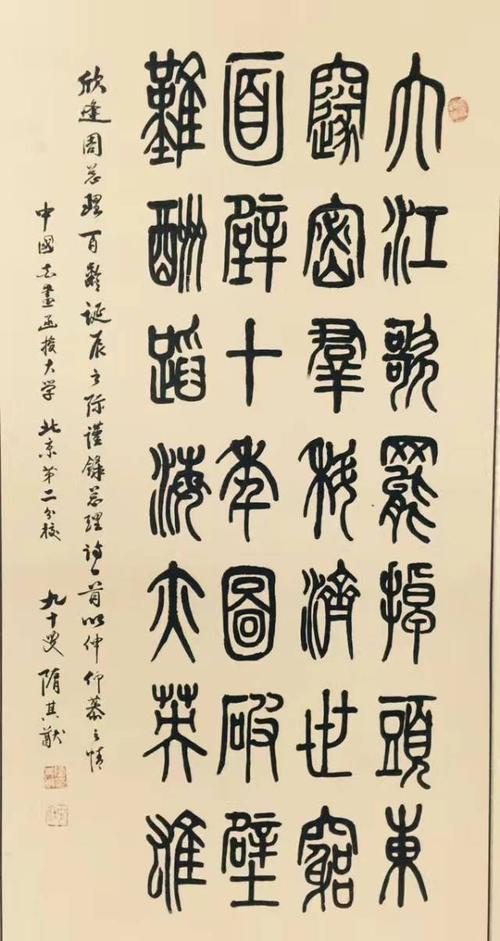 大江歌罷掉頭東
邃密羣科濟世窮
面壁十年圖破壁
難酬蹈海亦英雄
欣逢周总理百齡誕辰之际謹錄总理詩一首以伸仰慕之情
中國书畫函授大学 北京第二分校
九十叟 隋其猷